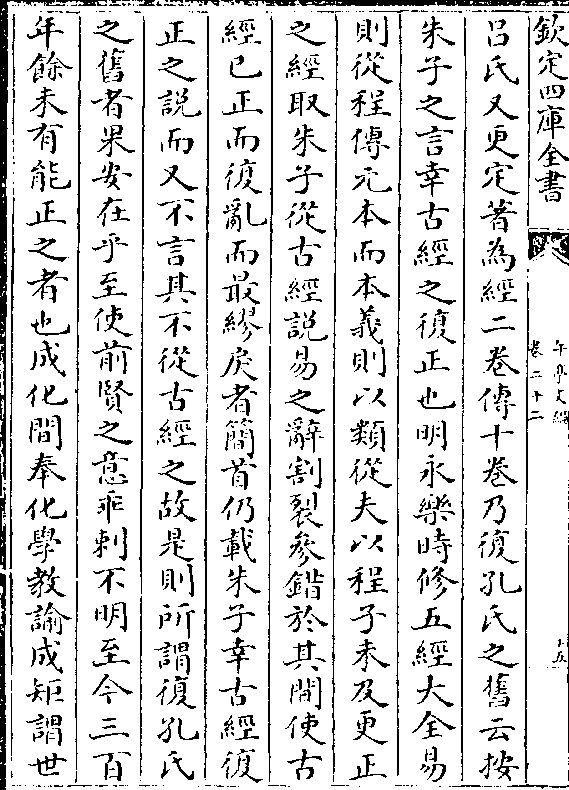 欽定四庫全書
午亭文編
卷二十二
呂氏又更定著為經二卷傳十卷乃復孔氏之舊云按
朱子之言幸古經之復正也明永樂時修五經大全易
則從程傳元本而本義則以類從夫以程子未及更正
之經取朱子從古經説易之辭割裂參錯於其間使古
經已正而復亂而最繆戾者簡首仍載朱子幸古經復
正之説而又不言其不從古經之故是則所謂復孔氏
之舊者果安在乎至使前賢之意乖剌不明至今三百
年餘未有能正之者也成化間奉化學教諭成矩謂世